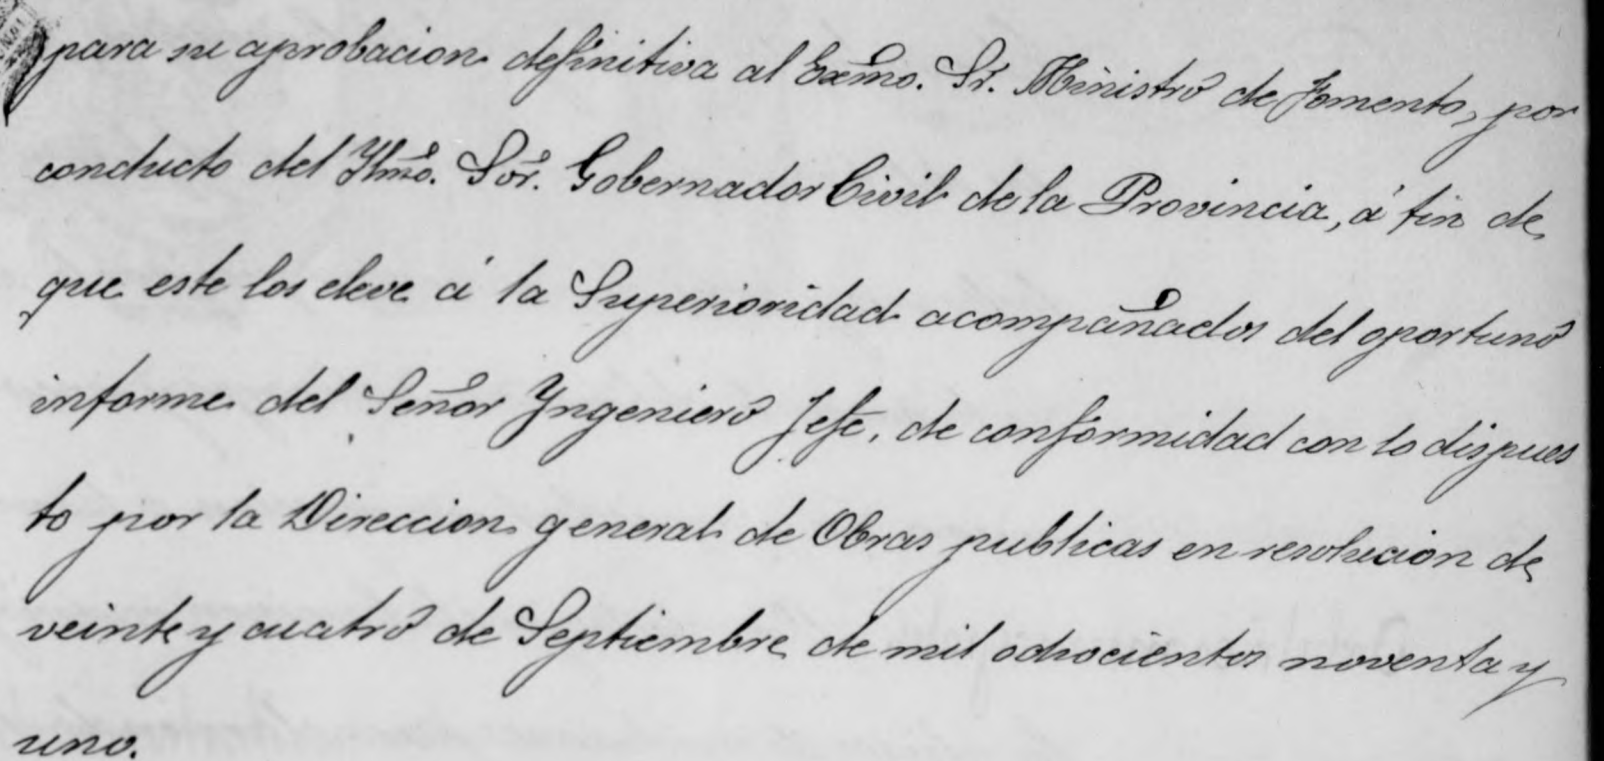 para su aprobacion definitiva al Exmo. Sr. Ministro de Fomento, por
conducto del Ylmo. Sor. Gobernador Civil de la Provincia, á fin de
que este los eleve á la Superioridad acompañados del oportuno
informe del Señor Yngeniero Jefe, de conformidad con lo dispues
to por la Direccion general de Obras publicas en resolucion de
veinte y cuatro de Septiembre de mil ochocientos noventa y
uno.